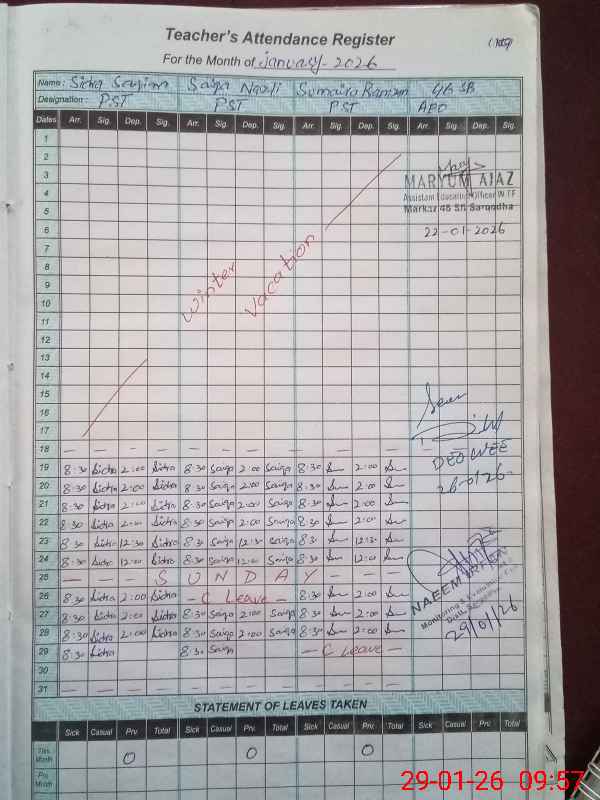 Teacher's Attendance Register
For the Month of January-2026
Name: Sidra Saima Saiqa Nazli Sumaira Ramzan 46 SB
Designation: PST PST PST AEO
Dates Arr. Sig. Dep. Sig. Arr. Sig. Dep. Sig. Arr. Sig. Dep. Sig. Arr. Sig. Dep. Sig.
1
2
3
MARYUM AJAZ
4
Assistant Education Officer W.T.F
5
Markaz 46 SB Sargodha
6
22-01-2026
7
8
9
winter vacation
10
11
12
13
14
15
16
Seen
17
18 — — — — — — — — — — — —
DEO WEE
19 8:30 Sidra 2:00 Sidra 8:30 Saiqa 2:00 Saiqa 8:30 2:00
20 8:30 Sidra 2:00 Sidra 8:30 Saiqa 2:00 Saiqa 8:30 2:00
21 8:30 Sidra 2:00 Sidra 8:30 Saiqa 2:00 Saiqa 8:30 2:00
22 8:30 Sidra 2:00 Sidra 8:30 Saiqa 2:00 Saiqa 8:30 2:00
23 8:30 Sidra 12:30 Sidra 8:30 Saiqa 12:30 Saiqa 8:30 12:30
24 8:30 Sidra 12:00 Sidra 8:30 Saiqa 12:00 Saiqa 8:30 12:00
25 — — — S U N D A Y — — —
NAEEM
26 8:30 Sidra 2:00 Sidra — C Leave — 8:30 2:00
27 8:30 Sidra 2:00 Sidra 8:30 Saiqa 2:00 Saiqa 8:30 2:00
28 8:30 Sidra 2:00 Sidra 8:30 Saiqa 2:00 Saiqa 8:30 2:00
29/01/26
29 8:30 Sidra 8:30 Saiqa — C Leave —
30
31 — — — — — — — — — — — —
STATEMENT OF LEAVES TAKEN
Sick Casual Prv. Total Sick Casual Prv. Total Sick Casual Prv. Total Sick Casual Prv. Total
This Month 0 0 0
Prv. Month
29-01-26 09:57